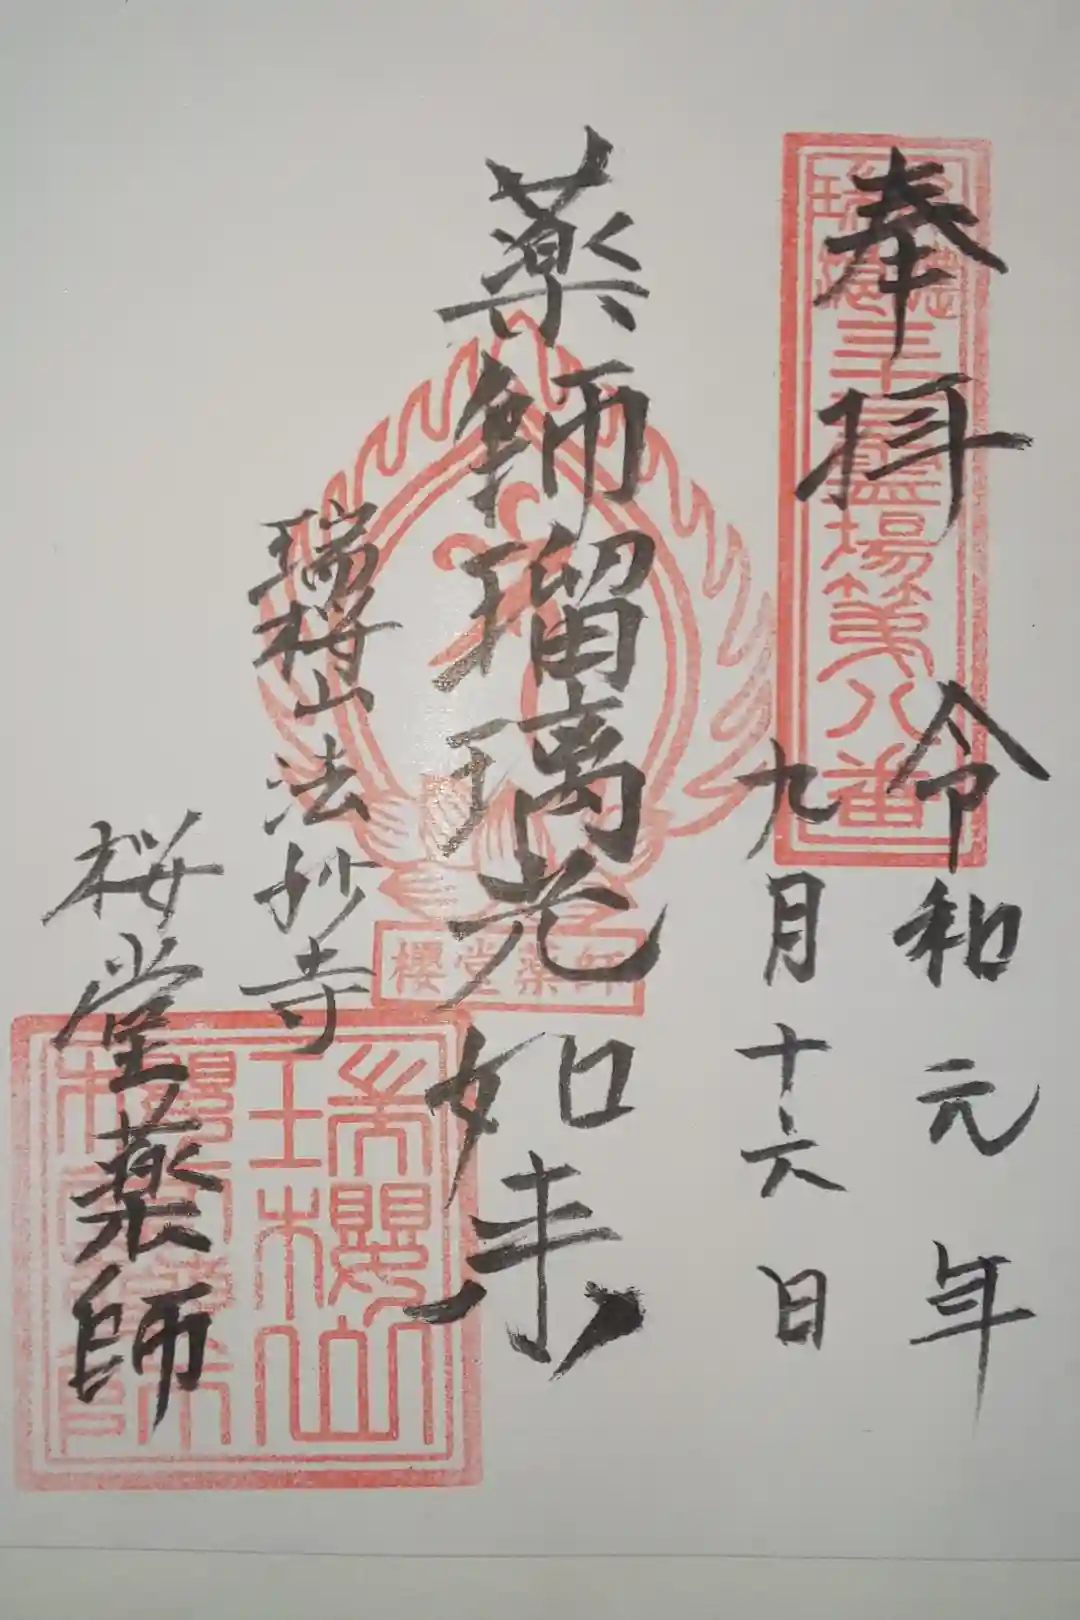 奉拝
令和元年
九月十六日
薬師瑠璃光如来
瑞桜山 法妙寺
桜堂薬師
三十三霊場第八番
櫻堂薬師
瑞櫻山